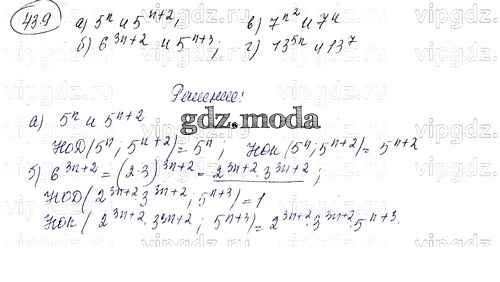 43.9 а) 5ⁿ и 5ⁿ⁺², в) 7ⁿ² и 7⁴
б) 6³ⁿ⁺² и 5ⁿ⁺³; г) 13⁵ⁿ и 13⁷
Решение:
gdz.moda
а) 5ⁿ и 5ⁿ⁺²
НОД(5ⁿ; 5ⁿ⁺²) = 5ⁿ; НОК(5ⁿ; 5ⁿ⁺²) = 5ⁿ⁺²
б) 6³ⁿ⁺² = (2·3)³ⁿ⁺² = 2³ⁿ⁺²·3³ⁿ⁺²;
НОД(2³ⁿ⁺²·3³ⁿ⁺², 5ⁿ⁺³) = 1
НОК(2³ⁿ⁺²·3³ⁿ⁺²; 5ⁿ⁺³) = 2³ⁿ⁺²·3³ⁿ⁺²·5ⁿ⁺³.
vipgdz.com